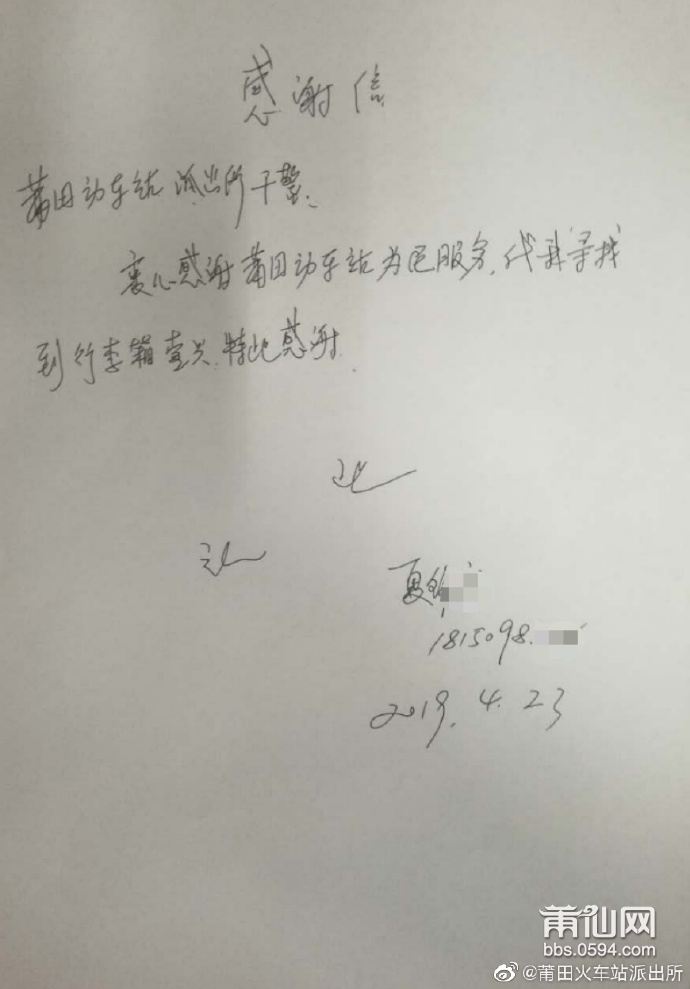 感谢信
莆田动车站派出所干警、
衷心感谢莆田动车站为民服务,代我寻找
到行李箱壹只.特此感谢
此
致
夏
1815098.
2019.4.23
莆仙网
bbs.0594.com
@莆田火车站派出所